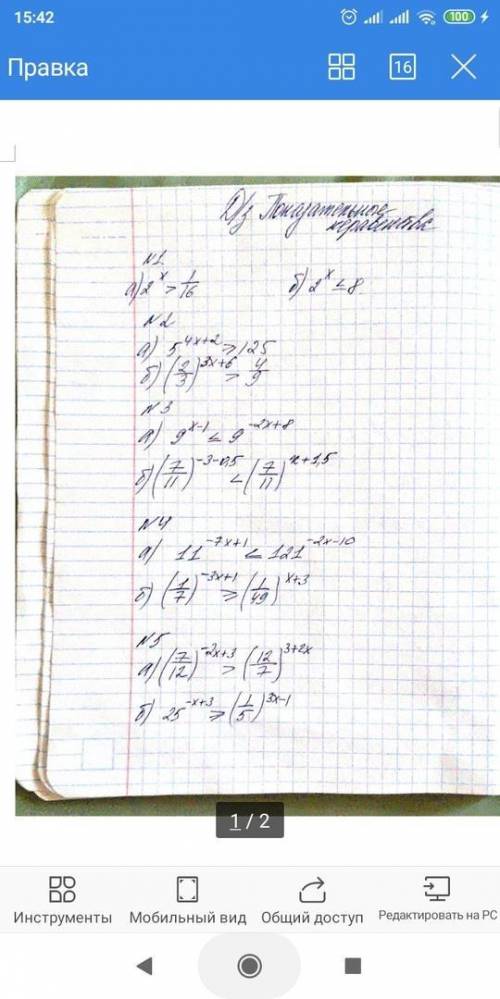 15:42
100
Правка
16
Д/з Показательное
неравенство
№1
а) 2^x > 1/16 б) 2^x ≤ 8
№2
а) 5^(4x+2) ≥ 125
б) (2/3)^(3x+6) > 4/9
№3
а) 9^(x-1) ≤ 9^(-2x+8)
б) (7/11)^(-3-0,5) < (7/11)^(x+1,5)
№4
а) 11^(-7x+1) ≤ 121^(-2x-10)
б) (1/7)^(-3x+1) ≥ (1/49)^(x+3)
№5
а) (7/12)^(-2x+3) > (12/7)^(3+2x)
б) 25^(-x+3) ≥ (1/5)^(3x-1)
1 / 2
Инструменты Мобильный вид Общий доступ Редактировать на PC